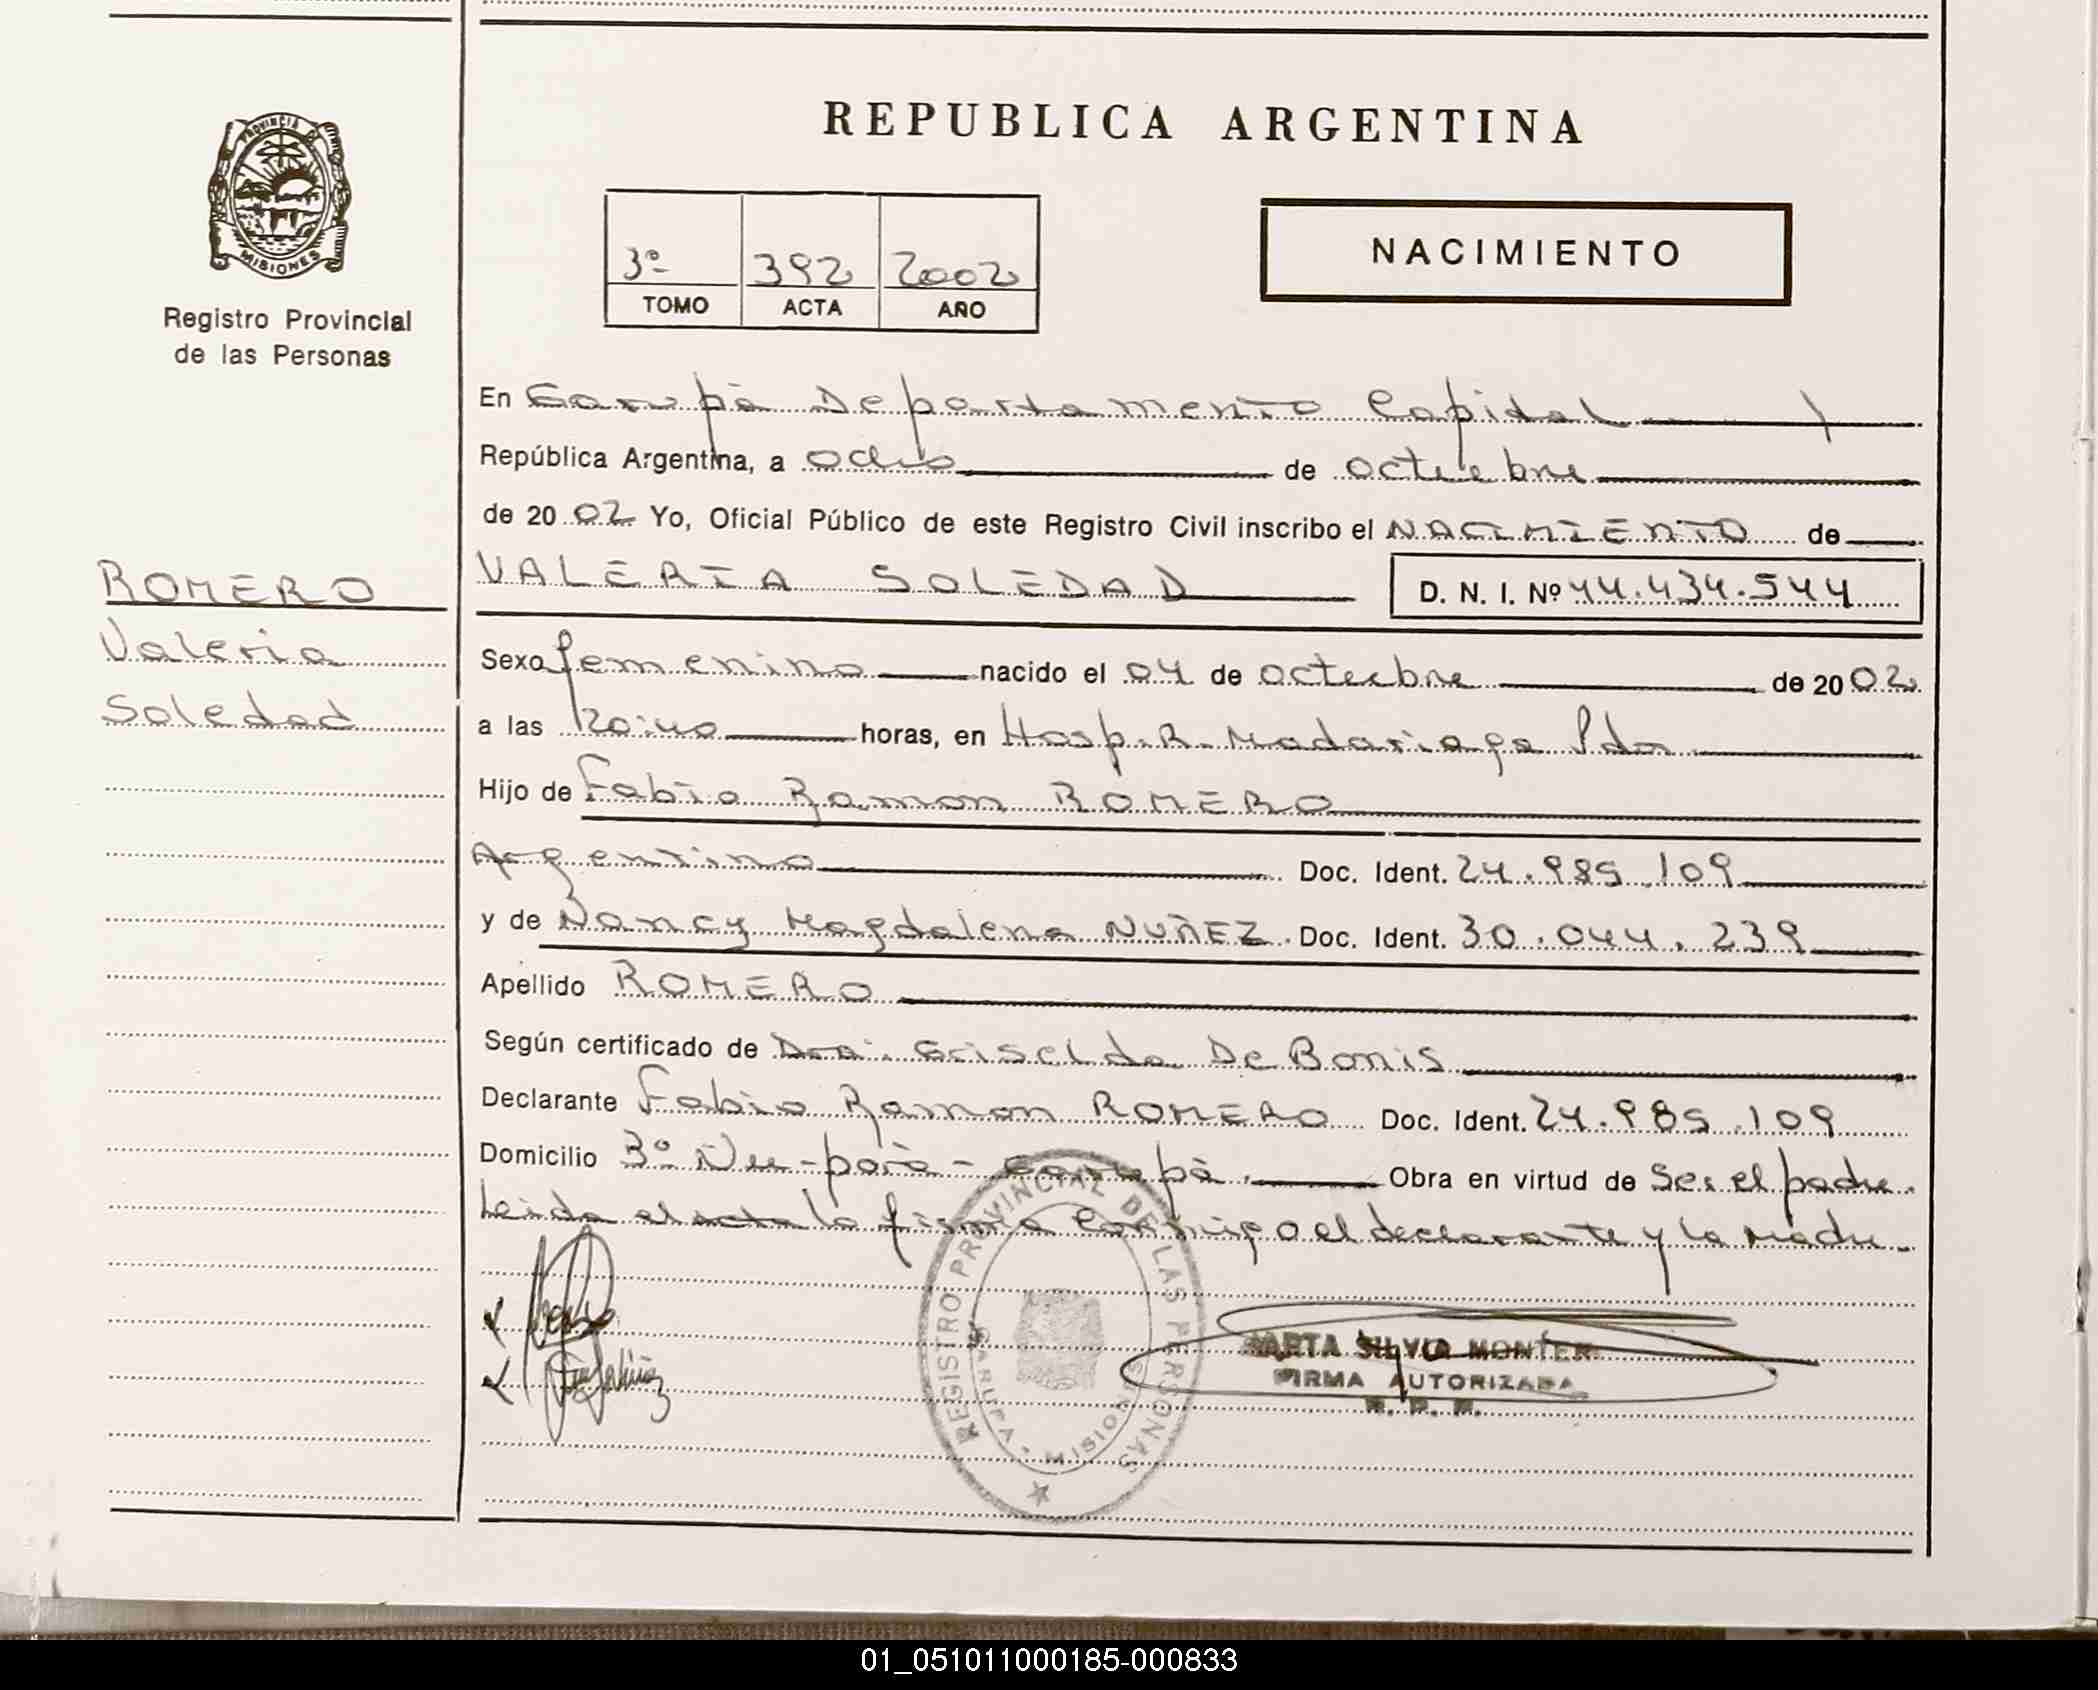 REPUBLICA ARGENTINA
PROVINCIA DE
MISIONES
Registro Provincial
de las Personas
3º 392 2002
TOMO ACTA AÑO
NACIMIENTO
En Garupà Departamento Capital
República Argentina, a ocho de octubre
de 2002 Yo, Oficial Público de este Registro Civil inscribo el NACIMIENTO de
VALERIA SOLEDAD D. N. I. Nº 44.434.544
ROMERO
Valeria
Soledad
Sexo femenino nacido el 04 de octubre de 2002
a las horas, en Hosp. R. Madariaga Pdas
Hijo de Fabio Ramon ROMERO
Argentino Doc. Ident. 24.985.109
y de Nancy Magdalena NUÑEZ Doc. Ident. 30.044.239
Apellido ROMERO
Según certificado de Dra. Griselda De Bonis
Declarante Fabio Ramon ROMERO Doc. Ident. 24.985.109
Domicilio 3º Ñu-porà - Garupà. Obra en virtud de Ser el padre.
Leida el acta la firma conmigo el declarante y la madre.
REGISTRO PROVINCIAL DE LAS PERSONAS
GARUPA - MISIONES
MARTA SILVIA MONTER
FIRMA AUTORIZADA
01_051011000185-000833